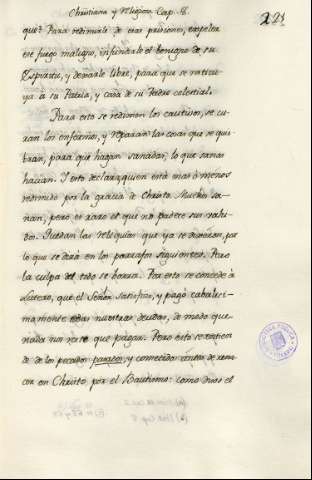 Christiana y Religiosa Cap. 8.
221
que? Para redimirle de esas prisiones, expeler
ese fuego maligno, infundirle el benigno de su
Espiritu, y dexarle libre, para que se restitu
ya á su Patria, y casa de su Padre celestial.
Para esto se redimen los cautivos, se cu
ran los enfermos, y reparan las cosas que se quie
bran, para que hagan sanadas, lo que sanas
hacian. Y esto declara quien está mas ó menos
redimido por la gracia de Christo. Muchos sa
nan, pero es raro el que no padece sus
dos. Quedan las reliquias que ya se dixeron, por
lo que se dirá en los parrafos siguientes. Pero
la culpa del todo se borra. Por esto se concede á
Lutero, que el Señor satisfizo, y pagó cabalis
mamente todas nuestras deudas, de modo que
nada nos resta que pagar. Pero esto se entien
de de los pecados pasados, y cometidos antes de rena
cer en Christo por el Bautismo: como dixo el